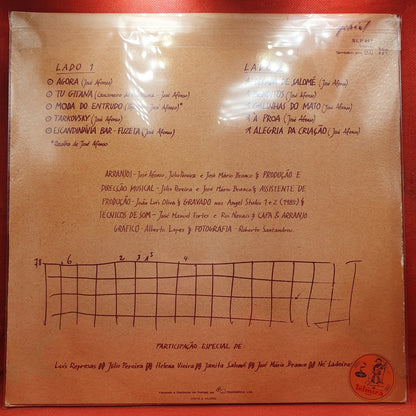 LADO 1
AGORA (José Afonso)
TU GITANA (Cancioneiro de José Afonso)
MODA DO ENTRUDO José Afonso)*
TARKOVSKY (José Afonso)
ESCANDINÁVIA BAR-FUZETA (José Afonso)
*Recolha de José Afonso
LADO
DE SALOMÉ (José Afonso)
GALINHAS DO MATO (José Afonso)
A PROA (José Afonso)
ALEGRIA DA CRIAÇÃO (José Afonso)
ARRANJOS - José Afonso, Júlio Pereira e José Mário Branco PRODUÇÃO E
DIRECÇÃO MUSICAL - Júlio Pereira e José Mário Branco ASSISTENTE DE
PRODUÇÃO - João Luis Oliva GRAVADO nos Angel Studio 1 e 2 (1985)
TÉCNICOS DE SOM - José Manuel Fortes e Rui Novais CAPA & ARRANJO
GRÁFICO - Alberto Lopes FOTOGRAFIA - Roberto Santandreu
78 6 2 3 5 4
PARTICIPAÇÃO ESPECIAL DE
Luís Represas Júlio Pereira Helena Vieira Janita Salomé José Mário Branco Né Ladeiras